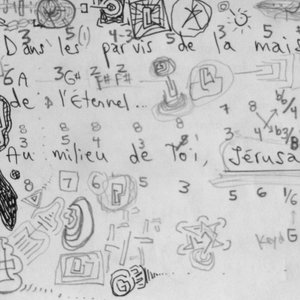 3 5 4-3 5 3 5
Dans les parvis de la mai
6A 3G# 2F# 2F#
de l'Éternel...
8 8 8 8 8 7 8 b6/4
3 5 4 3 3 4 b3/8
Au milieu de Toi, Jérusa
8 7 6 P 5 3 5 6 1/6
Key G
G